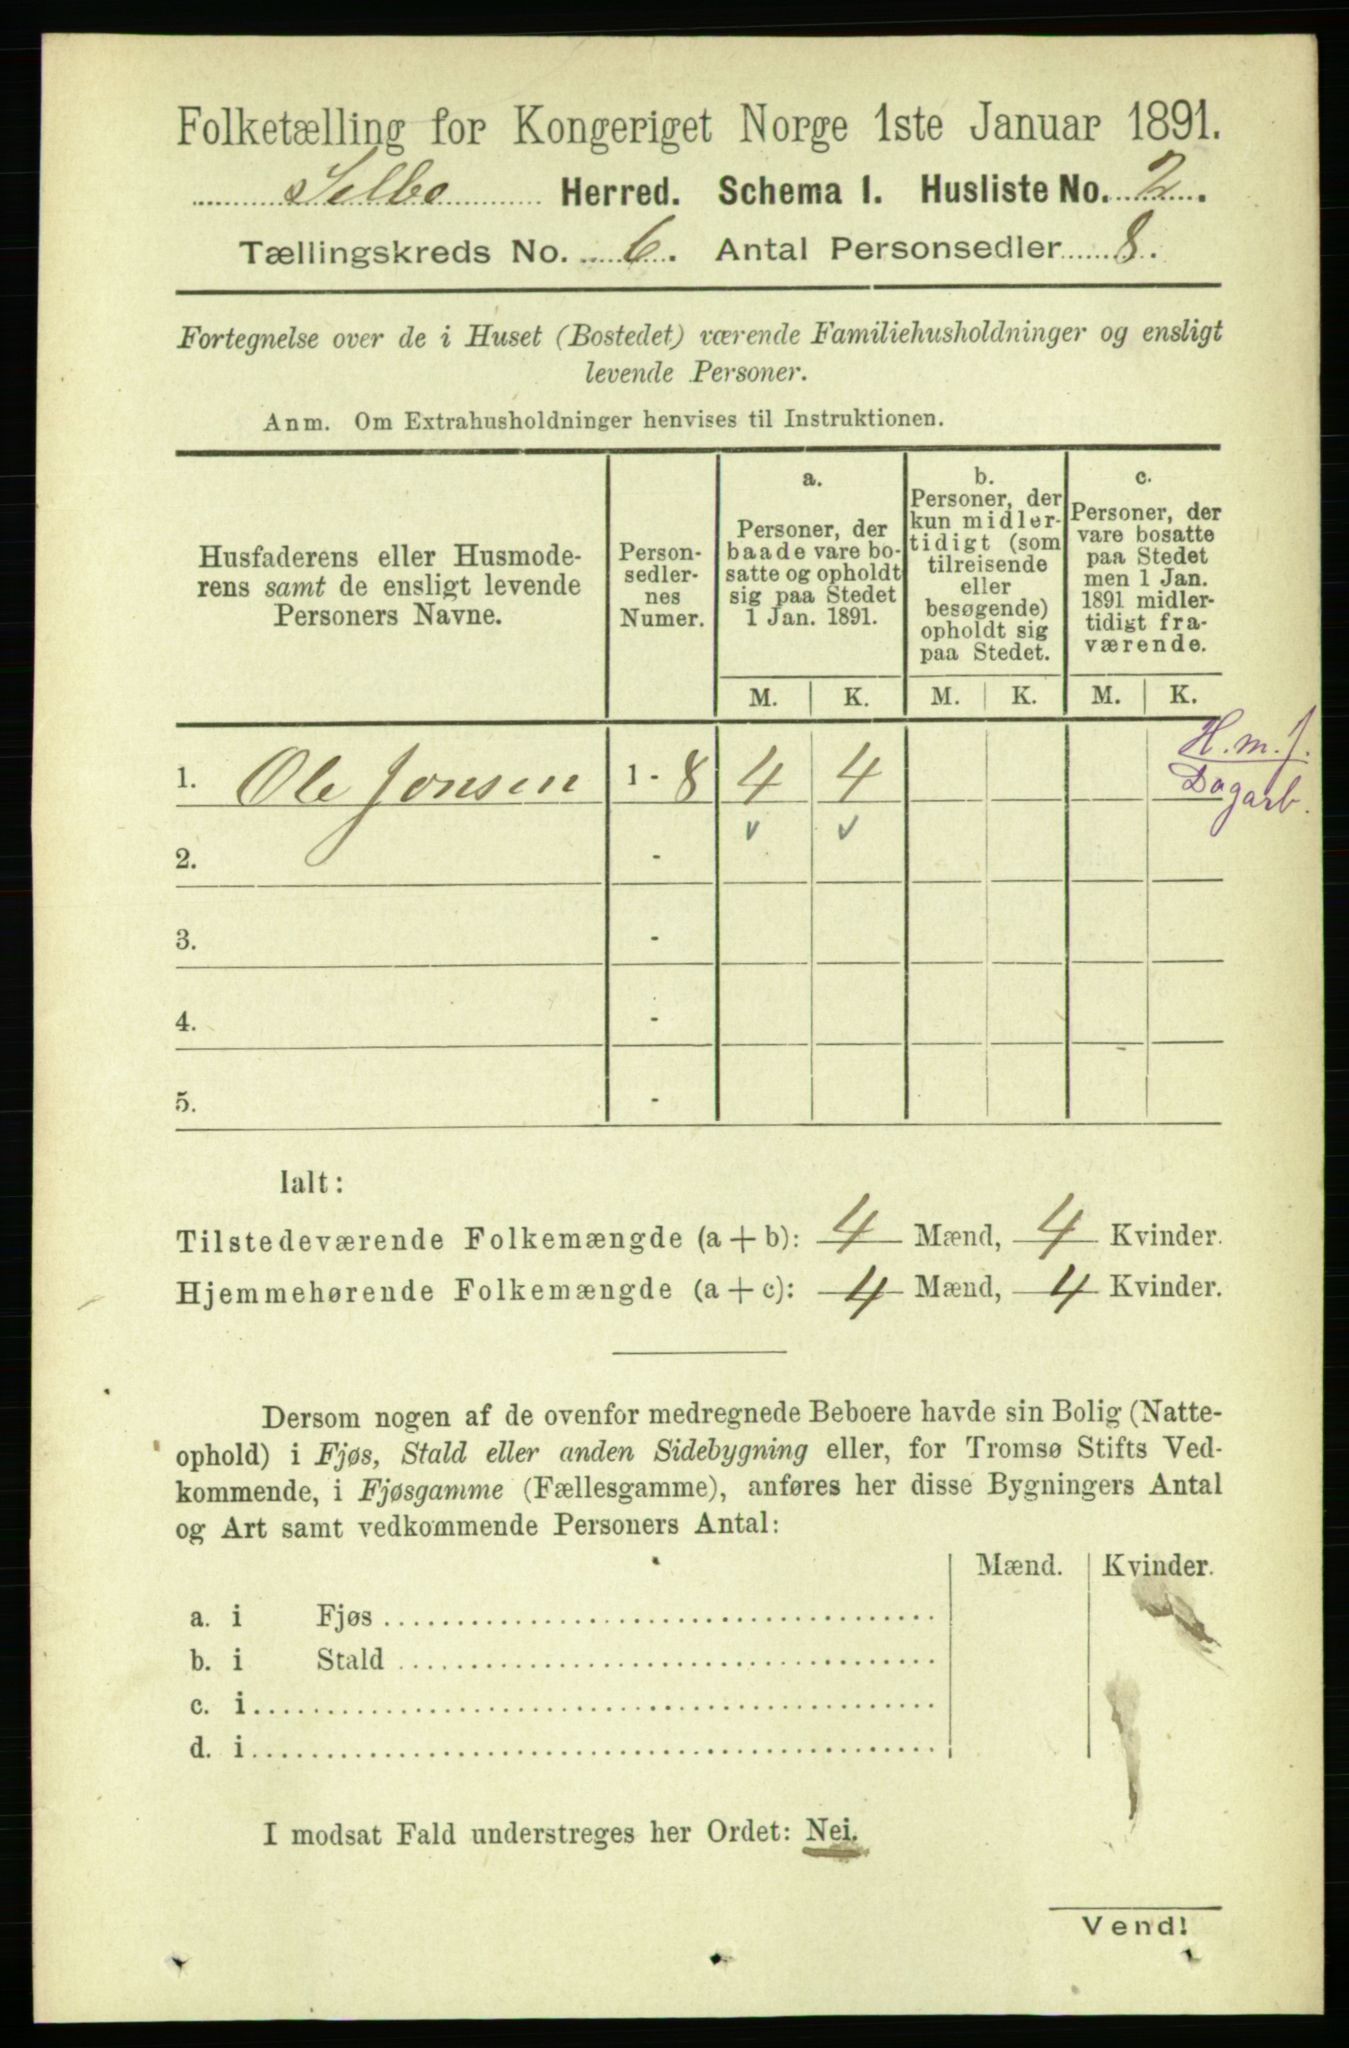 Folketælling for Kongeriget Norge 1ste Januar 1891.
Selbo Herred. Schema 1. Husliste No. 2.
Tællingskreds No. 6. Antal Personsedler 8.
Fortegnelse over de i Huset (Bostedet) værende Familiehusholdninger og ensligt
levende Personer.
Anm. Om Extrahusholdninger henvises til Instruktionen.
Husfaderens eller Husmode-
rens samt de ensligt levende
Personers Navne.
Person-
sedler-
nes
Numer.
a.
Personer, der
baade vare bo-
satte og opholdt
sig paa Stedet
1 Jan. 1891.
b.
Personer, der
kun midler-
tidigt (som
tilreisende
eller
besøgende)
opholdt sig
paa Stedet.
c.
Personer, der
vare bosatte
paa Stedet
men 1 Jan.
1891 midler-
tidigt fra-
værende.
M. K. M. K. M. K.
1. Ole Jonsen 1 - 8 4 4
H. m. J.
Dagarb.
✓ ✓
2. -
3. -
4. -
5. -
Ialt:
Tilstedeværende Folkemængde (a + b): 4 Mænd, 4 Kvinder.
Hjemmehørende Folkemængde (a + c): 4 Mænd, 4 Kvinder.
Dersom nogen af de ovenfor medregnede Beboere havde sin Bolig (Natte-
ophold) i Fjøs, Stald eller anden Sidebygning eller, for Tromsø Stifts Ved-
kommende, i Fjøsgamme (Fællesgamme), anføres her disse Bygningers Antal
og Art samt vedkommende Personers Antal:
Mænd. Kvinder.
a. i Fjøs
b. i Stald
c. i
d. i
I modsat Fald understreges her Ordet: Nei.
Vend!